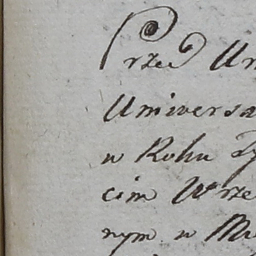 Przed Ur
Uniwersa
w Roku Ty
cim Wrze
nym w Mi